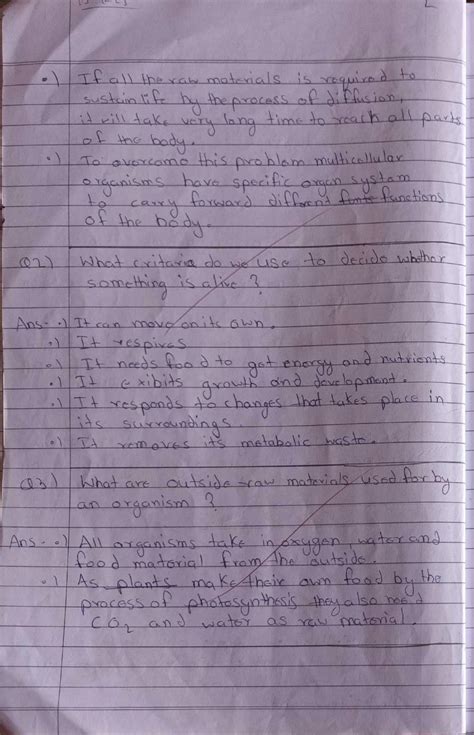 •) If all the raw materials is required to
sustain life by the process of diffusion,
it will take very long time to reach all parts
of the body.
•) To overcome this problem multicellular
organisms have specific organ system
to carry forward different functions
of the body.
Q2) What criteria do we use to decide whether
something is alive ?
Ans - •) It can move on its own.
•) It respires
•) It needs food to get energy and nutrients
•) It exibits growth and development.
•) It responds to changes that takes place in
its surroundings.
•) It removes its metabolic waste.
Q3) What are outside raw materials used for by
an organism ?
Ans - •) All organisms take in oxygen, water and
food material from the outside.
•) As plants make their own food by the
process of photosynthesis they also need
CO2 and water as raw material.